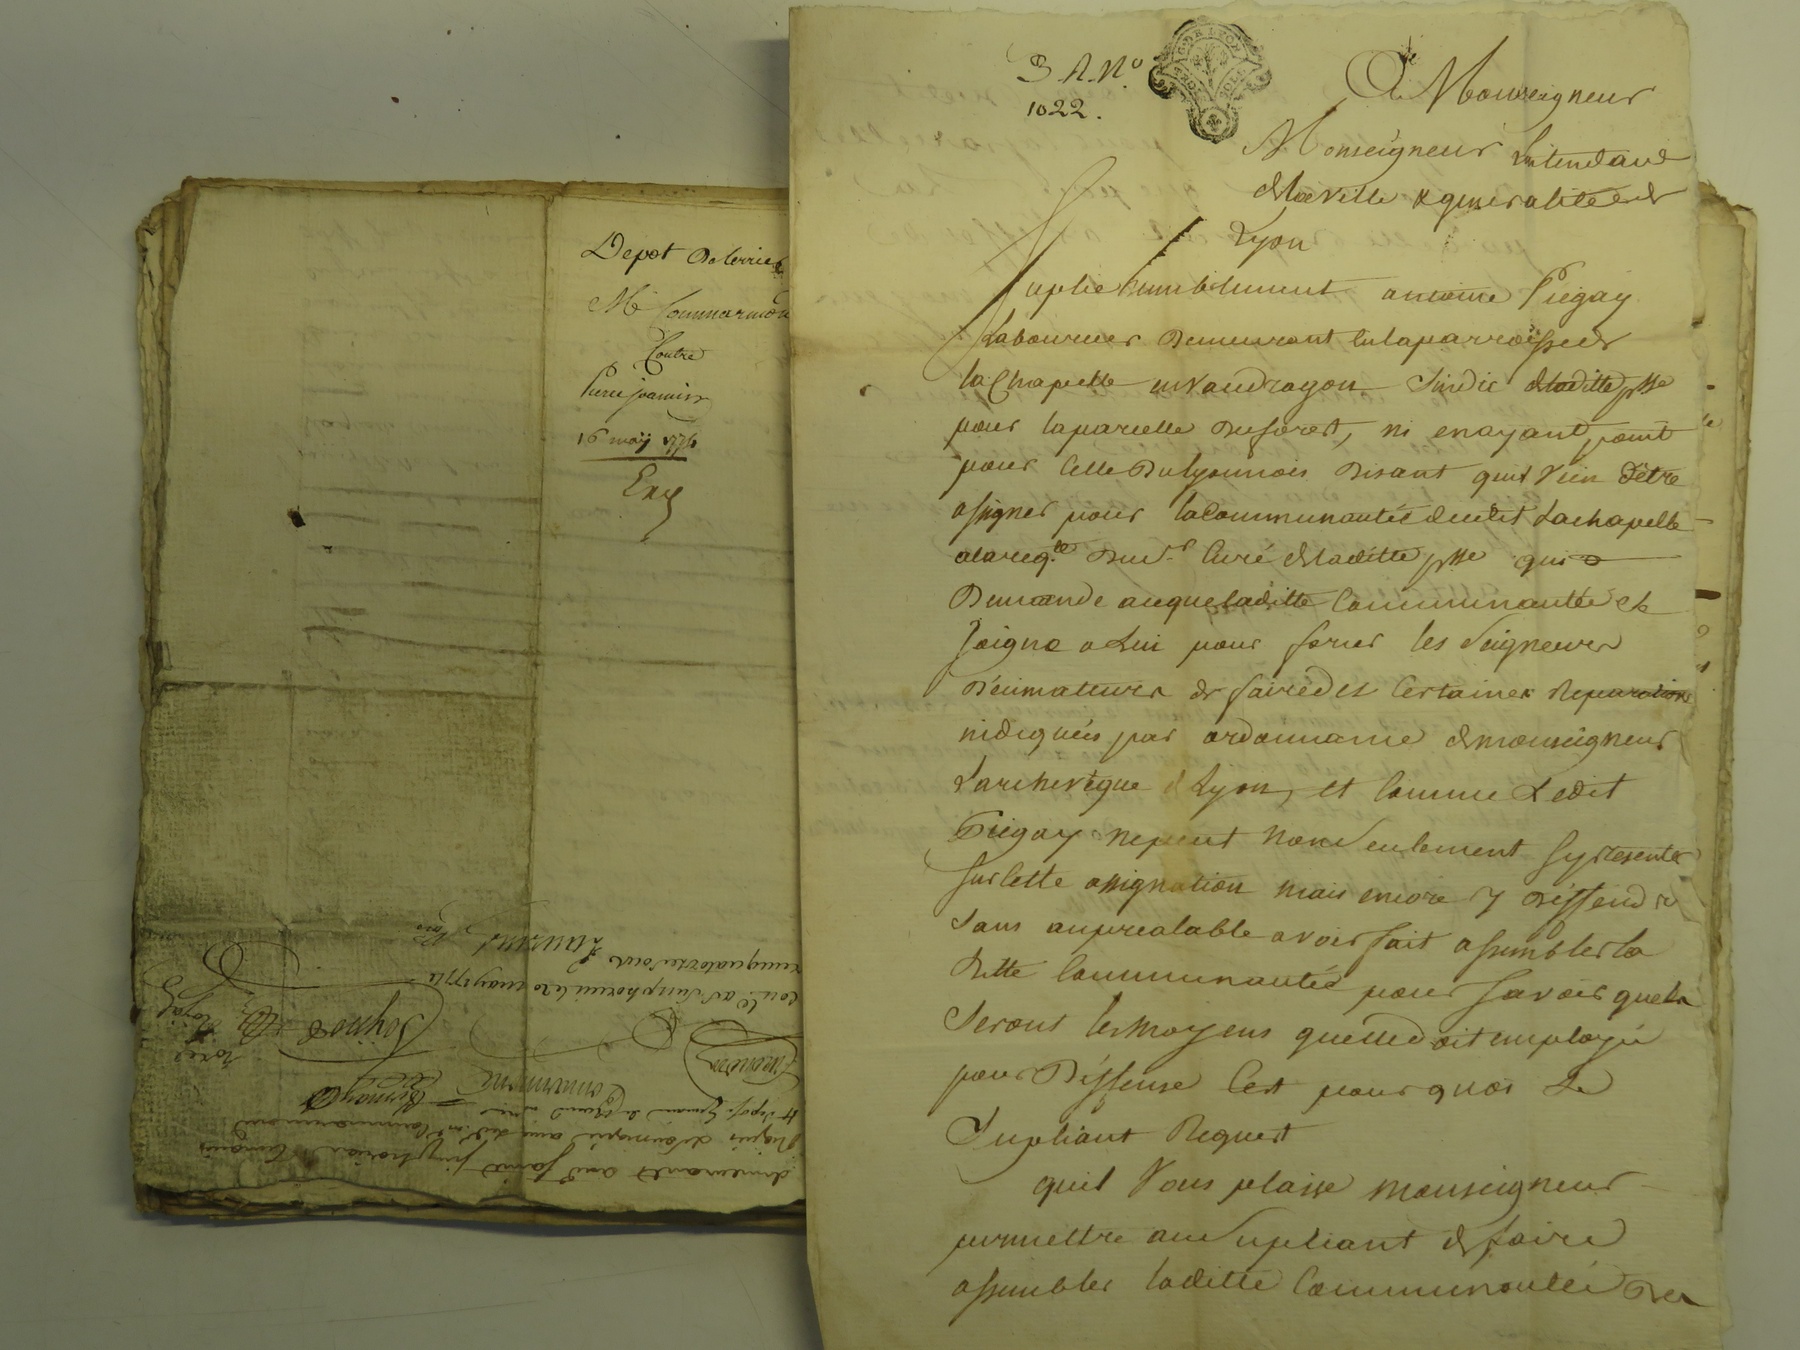 Depot De terrier
Mr Commarmond
Contre
Pierre joannin
16 may 1774
Exp
3 A. No
1022.
G. DE LYON
A Monseigneur
Monseigneur Lintendant
de la ville & generalité de
Lyon
Suplie humblement antoine Piegay
Laboureur Demeurant en la parroisse de
la Chapelle en vaudragon Sindic de la ditte psse
pour la parcelle du forest, ni en ayant point
pour Celle Du lyonnois Disant quil vien d'être
assigner pour la Communautée dudit Lachapelle
a la reqte Du sr Curé de la ditte psse qui
Demande a ce que la ditte Communautée se
Joigne a Lui pour forcer les Seigneurs
Décimateurs de faire des Certaines Reparations
indiquées par ordonnance de monseigneur
L'archevêque de Lyon, et Comme Ledit
Piegay ne peut non seulement sy presenter
sur Cette assignation mais encore y Déffendre
sans au prealable avoir fait assembler la
Ditte Communautée pour savoir quels
seront les moyens quelle doit employé
pour Déffense C'est pourquoi Le
Supliant Requert
quil Vous plaise monseigneur
permettre au supliant de faire
assembler laditte Communautée Des
demeurants aud saint simphorien
Commarmond
Laurent